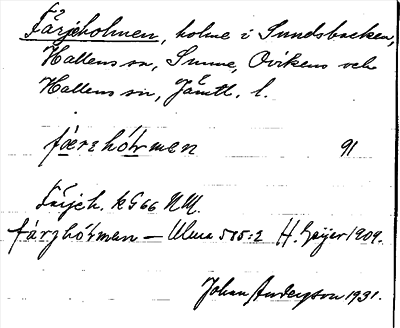 Färjeholmen, holme i Sundsbacken,
Hallens sn, Sunne, Ovikens och
Hallens sn, Jämtl. l.
færshóɫmen 91
Färjeh. k G 66 NM.
fárzhóɫmen – Ulma 585:2 H. Geijer 1909.
Johan Anderzson 1931.